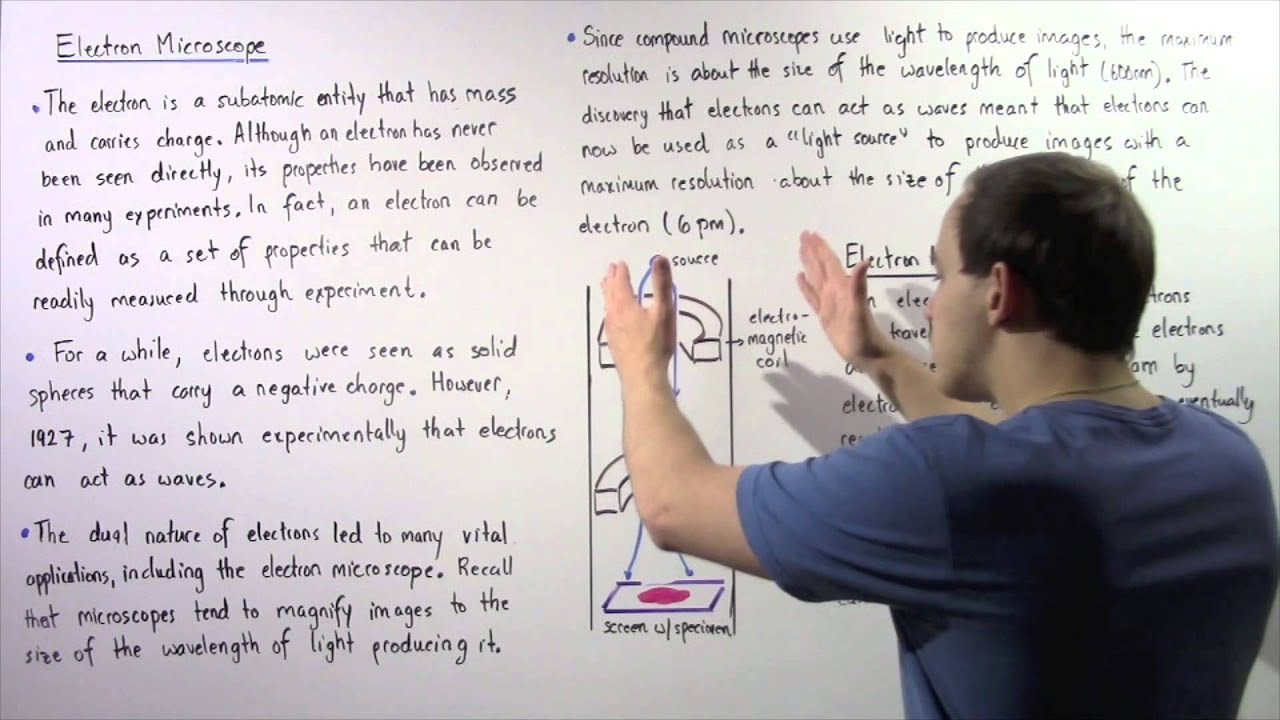 Electron Microscope
• The electron is a subatomic entity that has mass
and carries charge. Although an electron has never
been seen directly, its properties have been observed
in many experiments. In fact, an electron can be
defined as a set of properties that can be
readily measured through experiment.
• For a while, electrons were seen as solid
spheres that carry a negative charge. However,
1927, it was shown experimentally that electrons
can act as waves.
• The dual nature of electrons led to many vital
applications, including the electron microscope. Recall
that microscopes tend to magnify images to the
size of the wavelength of light producing it.
• Since compound microscopes use light to produce images, the maximum
resolution is about the size of the wavelength of light (600nm). The
discovery that electrons can act as waves meant that electrons can
now be used as a "light source" to produce images with a
maximum resolution about the size of of the
electron (6 pm).
source
electro-
magnetic
coil
screen w/specimen
Electron
elec trons
travel electrons
am by
electro eventually